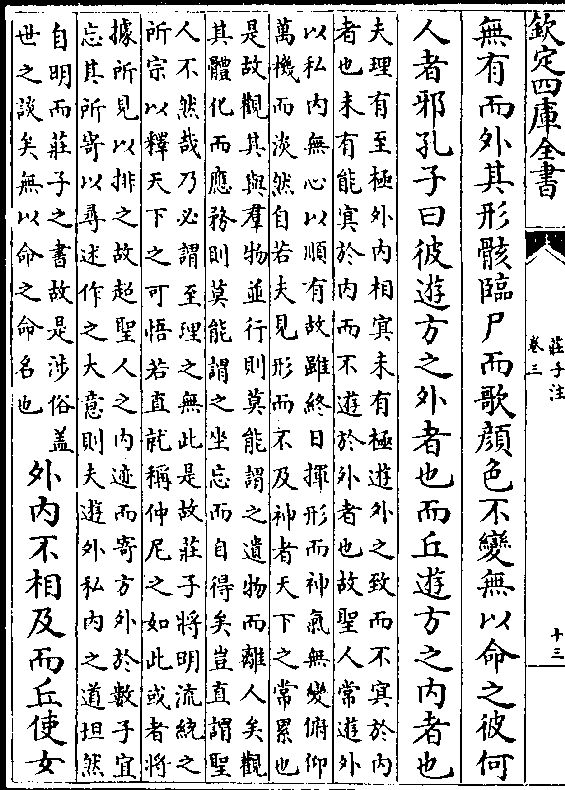 欽定四庫全書
莊子注
卷三
十三
無有而外其形骸臨尸而歌顔色不變無以命之彼何
人者邪孔子曰彼遊方之外者也而丘遊方之内者也
夫理有至極外内相冥未有極遊外之致而不冥於内
者也未有能冥於内而不遊於外者也故聖人常遊外
以私内無心以順有故雖終日揮形而神氣無變俯仰
萬機而淡然自若夫見形而不及神者天下之常累也
是故觀其與羣物並行則莫能謂之遺物而離人矣觀
其體化而應務則莫能謂之坐忘而自得矣豈直謂聖
人不然哉乃必謂至理之無此是故莊子將明流統之
所宗以釋天下之可悟若直就稱仲尼之如此或者將
據所見以排之故超聖人之内迹而寄方外於數子宜
忘其所寄以尋述作之大意則夫遊外私内之道坦然
自明而莊子之書故是涉俗盖
世之談矣無以命之命名也
外内不相及而丘使女